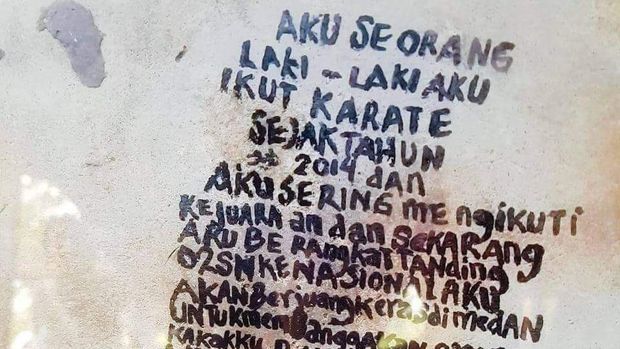 AKU SEORANG
LAKI - LAKI AKU
IKUT KARATE
SEJAK TAHUN
2014 dan
AKU SERING mengikuti
KEJUARAan dan SEKARANG
AKU BERangkat TANding
O2SN KE NASIONAL AKU
AKAN Berjuang keras di medAN
UNTUK membanggakan
KAKAKKU